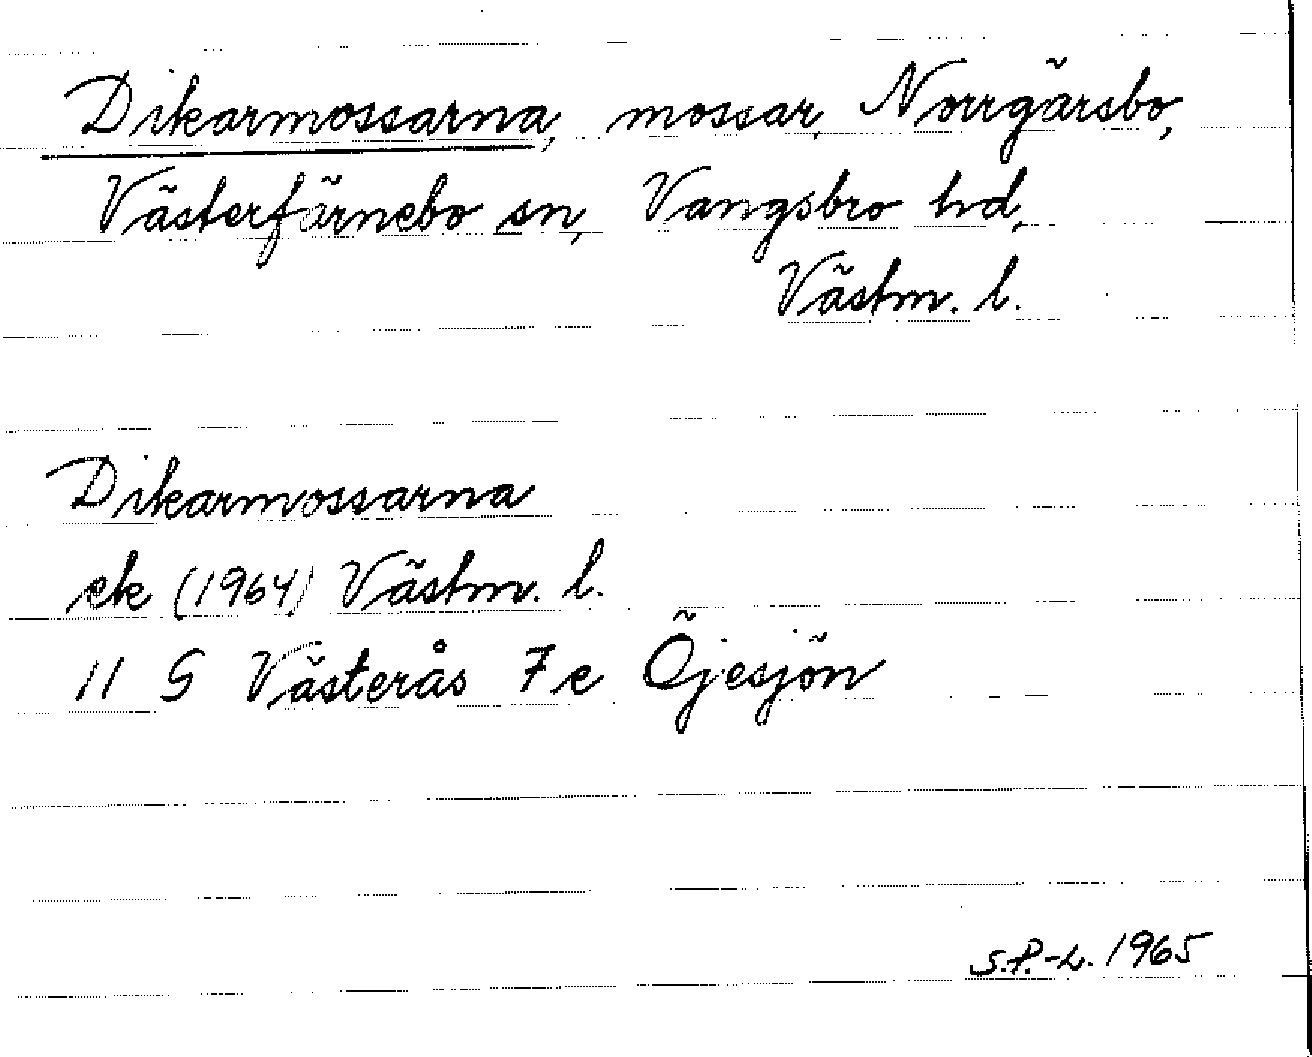 Dikarmossarna, mossar, Norrgärsbo,
Västerfärnebo sn, Vangsbro hd,
Västm. l.
Dikarmossarna
ek (1964) Västm. l.
11 G Västerås 7e Öjesjön
S.P.-L. 1965